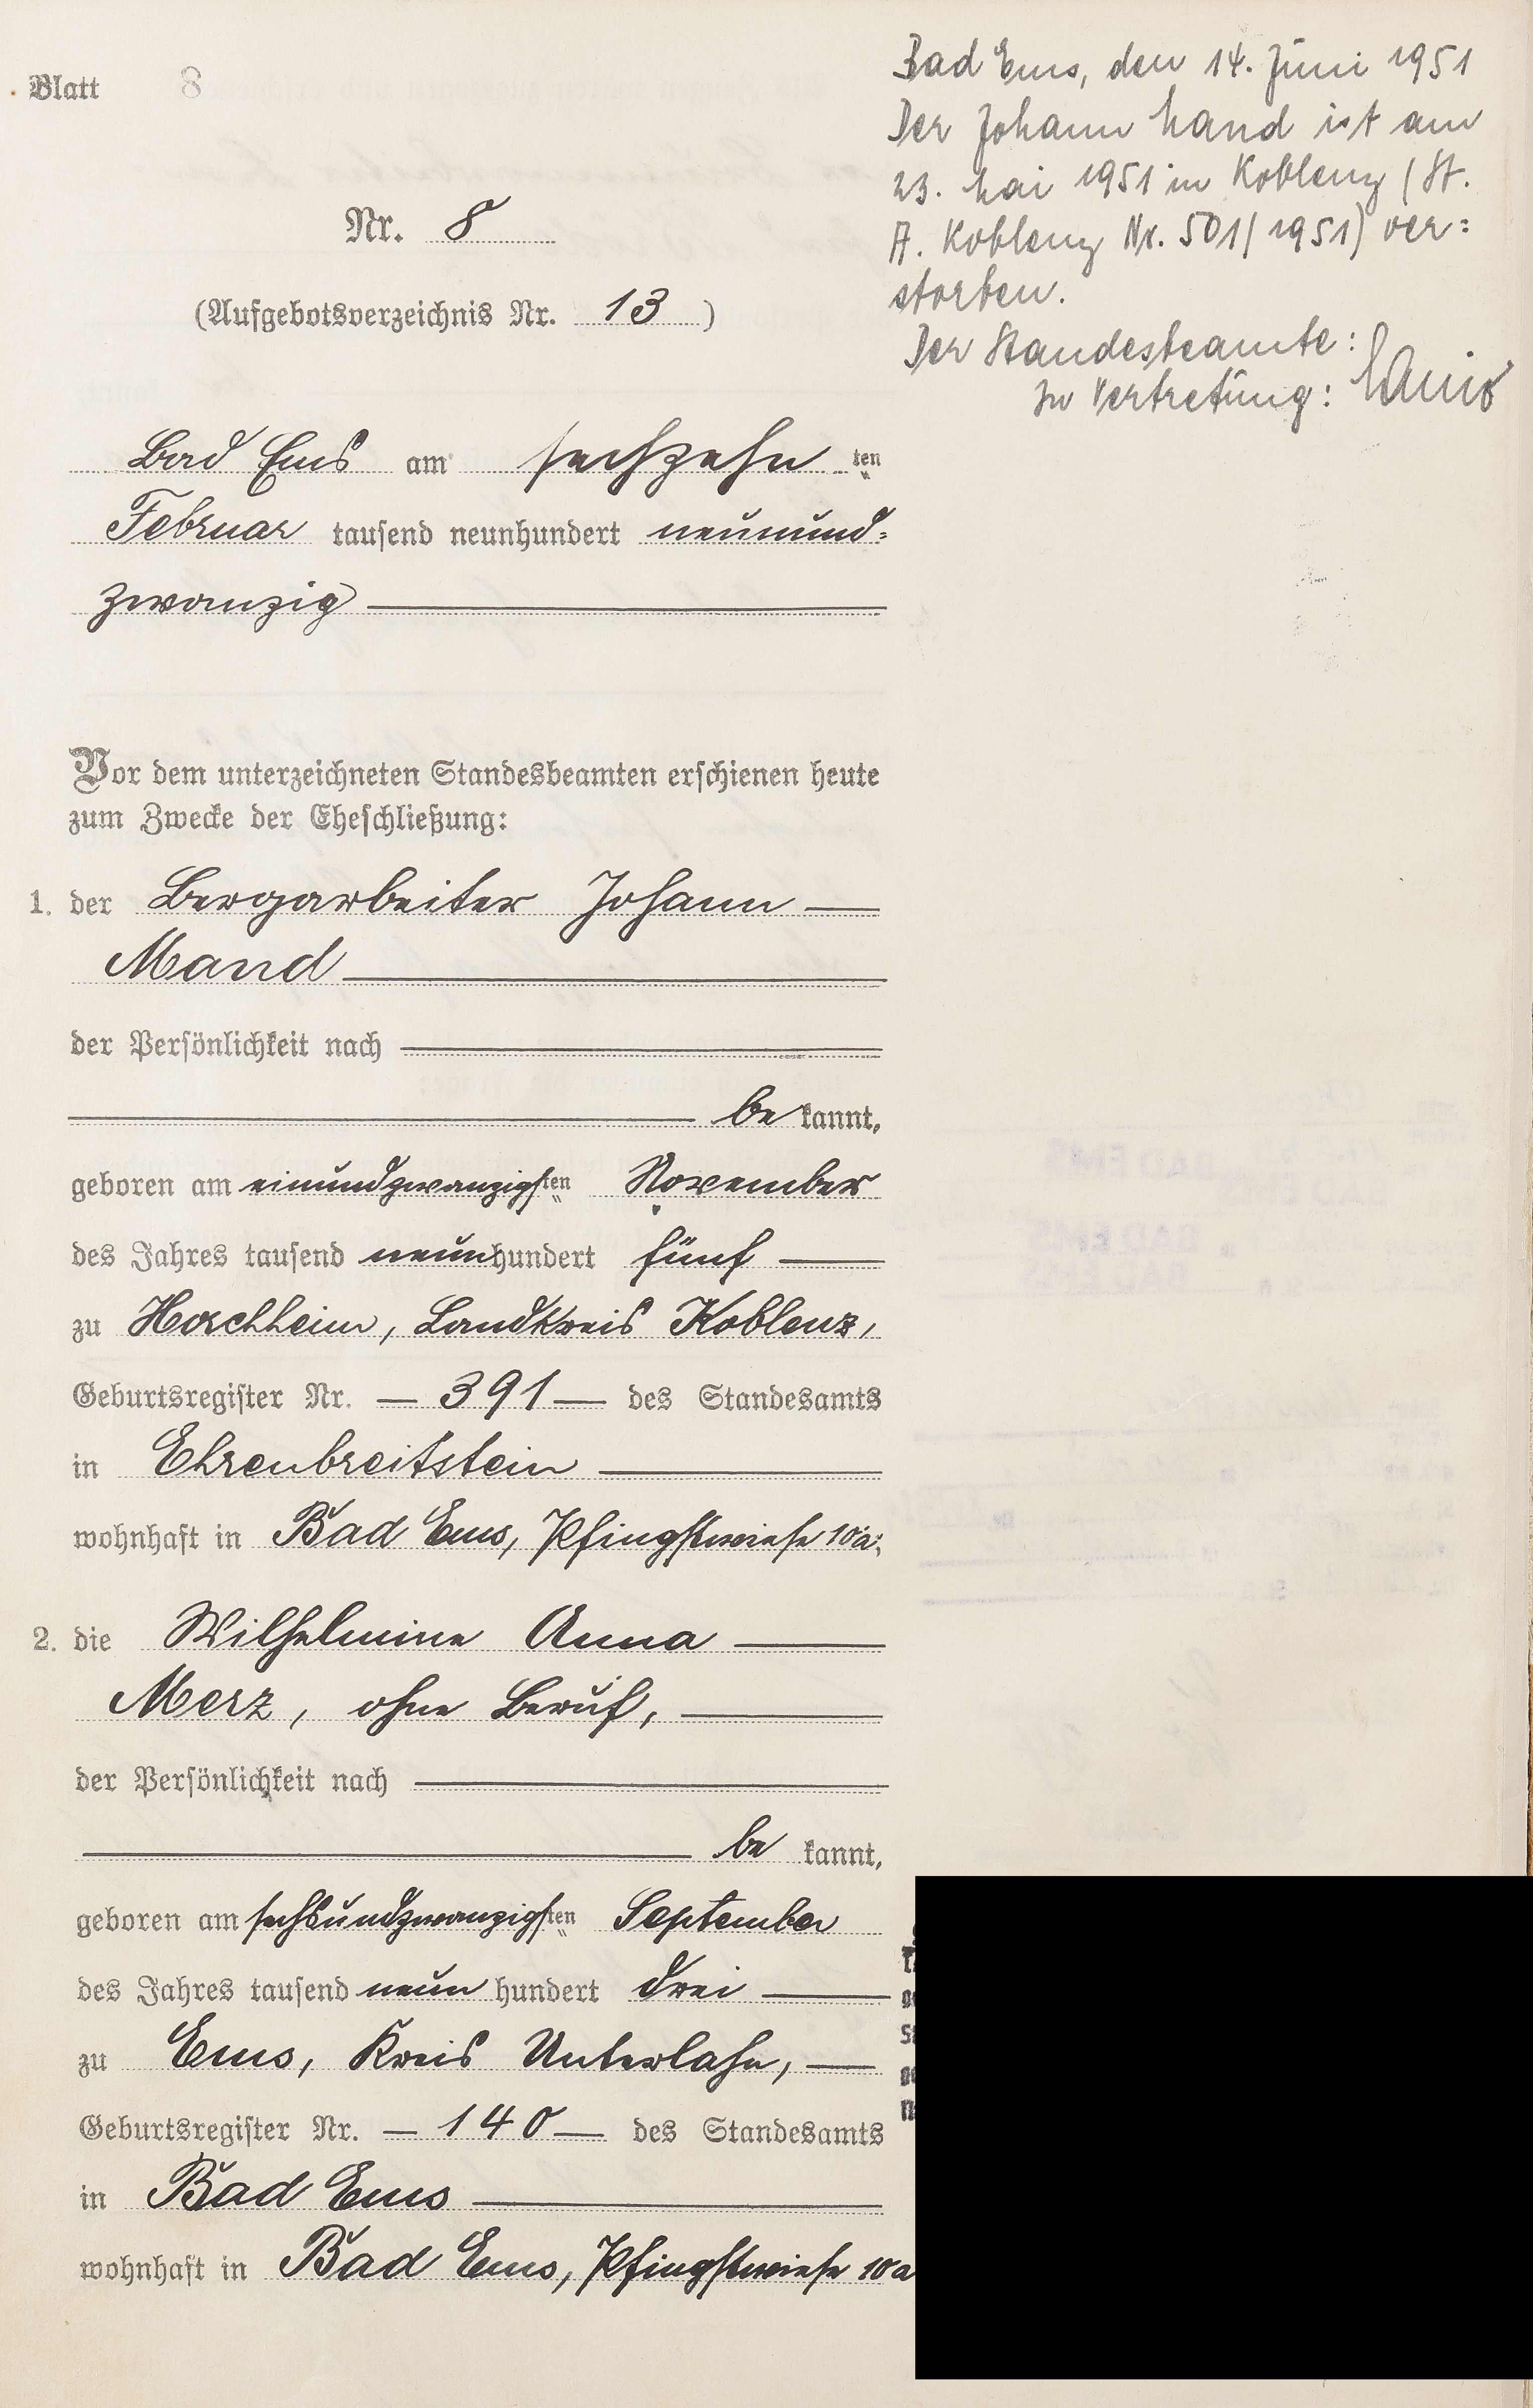 Blatt 8
Bad Ems, den 14. Juni 1951
Der Johann Mand ist am
23. Mai 1951 in Koblenz (St.
A. Koblenz Nr. 501/1951) ver=
storben.
Der Standesbeamte:
In Vertretung:
Nr. 8
(Aufgebotsverzeichnis Nr. 13)
Bad Ems am sechzehnten
Februar tausend neunhundert neunund=
zwanzig
Vor dem unterzeichneten Standesbeamten erschienen heute
zum Zwecke der Eheschließung:
1. der Bergarbeiter Johann
Mand
der Persönlichkeit nach
bekannt,
geboren am einundzwanzigsten November
des Jahres tausend neunhundert fünf
zu Horchheim, Landkreis Koblenz,
Geburtsregister Nr. 391 des Standesamts
in Ehrenbreitstein
wohnhaft in Bad Ems, Pfingstwiese 10a;
2. die Wilhelmine Anna
Merz, ohne Beruf,
der Persönlichkeit nach
bekannt,
geboren am sechsundzwanzigsten September
des Jahres tausend neunhundert drei
zu Ems, Kreis Unterlahn,
Geburtsregister Nr. 140 des Standesamts
in Bad Ems
wohnhaft in Bad Ems, Pfingstwiese 10a